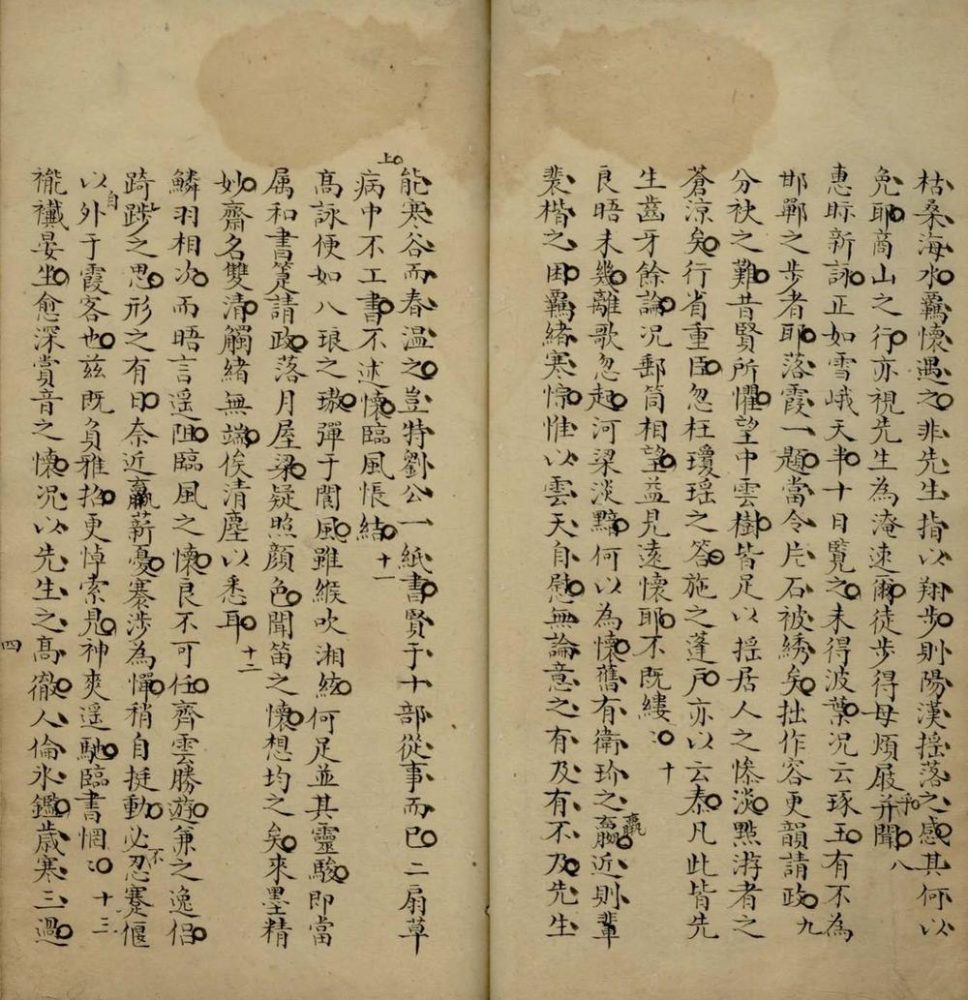 枯桑海水羈懷遇之非先生指以翔步則陽漢揺落之感其何以
免耶商山之行亦視先生為淹速爾徒步得毋煩屐并聞八
惠眎新詠正如雪峨天半十日覧之未得波葉况云琢玉有不為
邯鄲之步者耶落霞一題當令片石被綉矣拙作容更韻請政九
分袂之難昔賢所懼望中雲樹皆足以揺居人之惨淡黯游者之
蒼涼矣行省重臣忽枉瓊瑶之答施之蓬戶亦以云泰凡此皆先
生齒牙餘論况郵筒相望益見遠懷耶不既縷〻十
良晤未幾離歌忽起河梁淡黯何以為懷舊有衛玠之羸近則輩
裴楷之困羈緒寒悰惟以雲天自慰無論意之有及有不及先生
能寒谷而春溫之豈特劉公一紙書賢于十部從事而已二扇草
上
病中不工書不述懷臨風悵結十一
髙詠便如八琅之璈彈于閬風雖緱吹湘絃何足並其靈駿即當
属和書箑請政落月屋梁疑照顔色聞笛之懷想均之矣來墨精
妙齋名雙清觸緒無端俟清塵以悉耳十二
鱗羽相次而晤言遥阻臨風之懷良不可任齊雲勝遊兼之逸侣
跨踄之思形之有日奈近羸薪憂褰涉為憚稍自挺動必忍蹇偃
自 不
以外于霞客也兹既負雅招更悼索見神爽遥馳臨書惘〻十三
褦襶晏坐愈深賞音之懷况以先生之髙徹人倫氷鑑歳寒三過
四